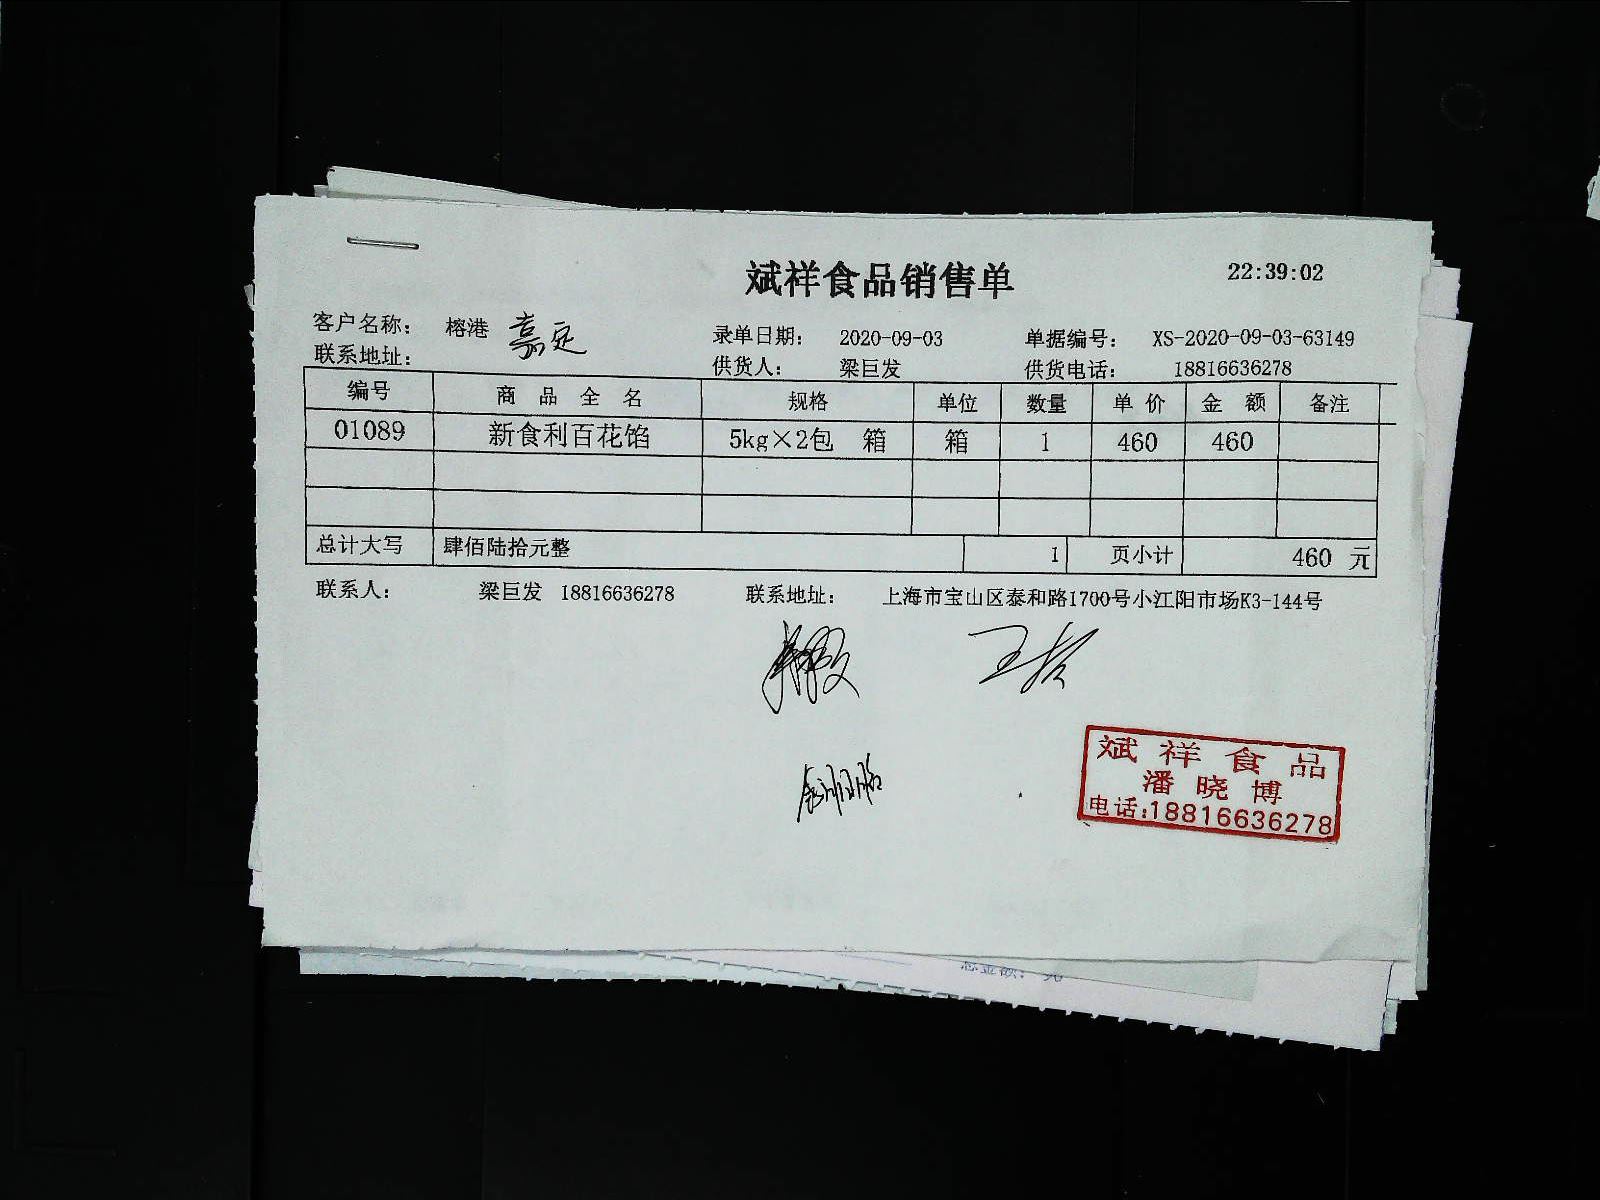 斌祥食品销售单
22:39:02
客户名称： 榕港 嘉定
录单日期： 2020-09-03
单据编号： XS-2020-09-03-63149
联系地址：
供货人： 梁巨发
供货电话： 18816636278
编号 商品全名 规格 单位 数量 单价 金额 备注
01089 新食利百花馅 5kg×2包 箱 箱 1 460 460
总计大写 肆佰陆拾元整 1 页小计 460 元
联系人： 梁巨发 18816636278 联系地址： 上海市宝山区泰和路1700号小江阳市场K3-144号
斌祥食品
潘晓博
电话:18816636278
总金额： 元